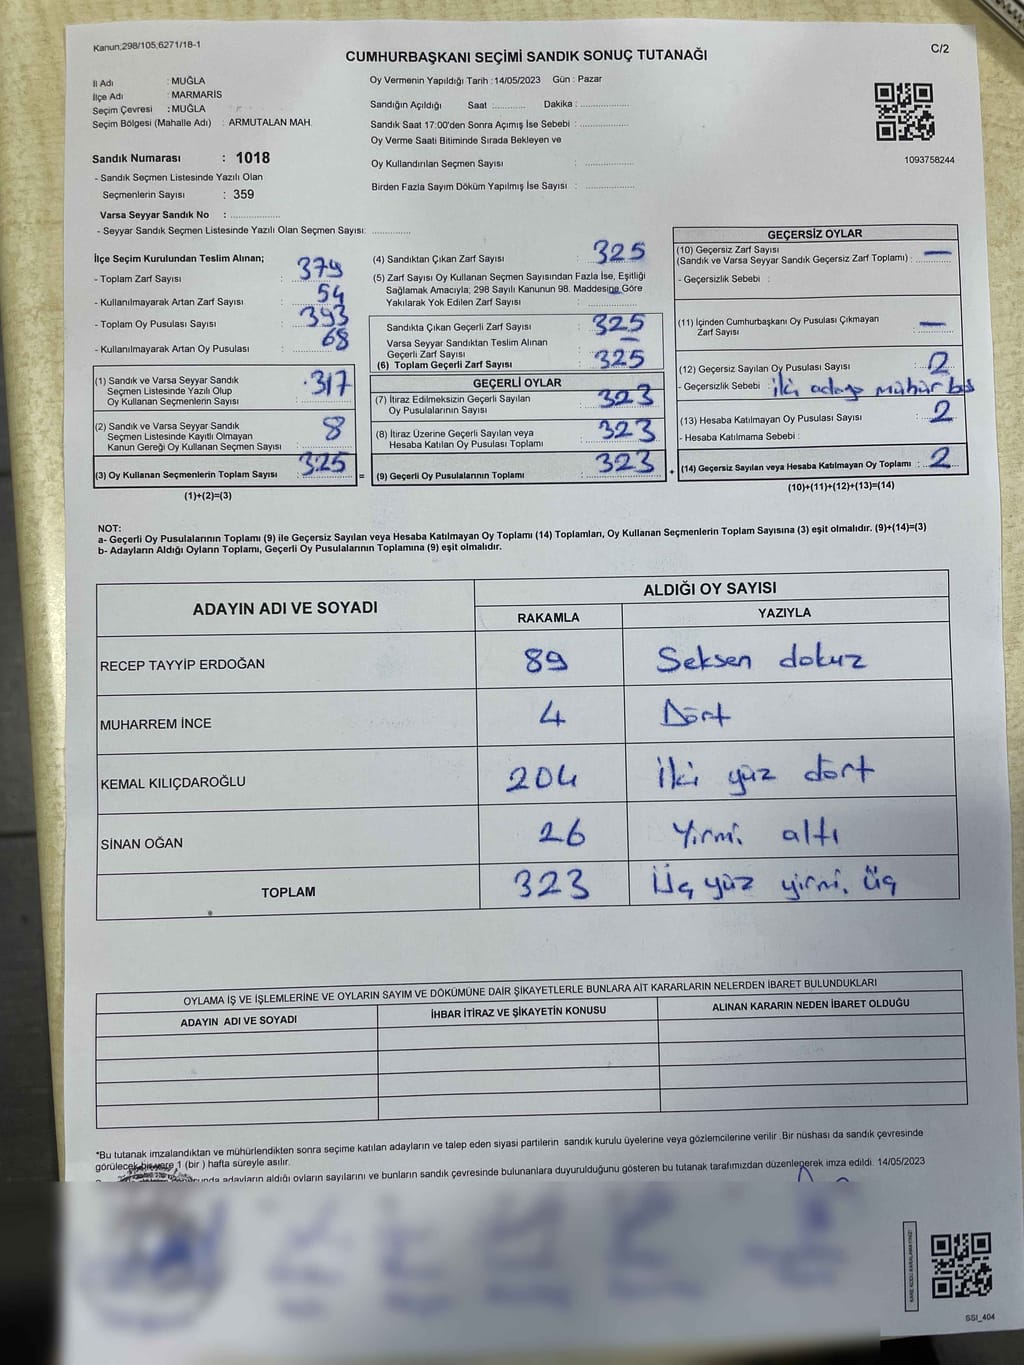 Kanun;298/105;6271/18-1
C/2
CUMHURBAŞKANI SEÇİMİ SANDIK SONUÇ TUTANAĞI
İl Adı : MUĞLA
İlçe Adı : MARMARİS
Seçim Çevresi : MUĞLA
Seçim Bölgesi (Mahalle Adı) : ARMUTALAN MAH.
Sandık Numarası : 1018
- Sandık Seçmen Listesinde Yazılı Olan
Seçmenlerin Sayısı : 359
Varsa Seyyar Sandık No : ................
- Seyyar Sandık Seçmen Listesinde Yazılı Olan Seçmen Sayısı: ............
Oy Vermenin Yapıldığı Tarih :14/05/2023 Gün : Pazar
Sandığın Açıldığı Saat :.......... Dakika : ...............
Sandık Saat 17:00'den Sonra Açımış İse Sebebi : ...............
Oy Verme Saati Bitiminde Sırada Bekleyen ve
Oy Kullandırılan Seçmen Sayısı : ...............
Birden Fazla Sayım Döküm Yapılmış İse Sayısı : ...............
1093758244
İlçe Seçim Kurulundan Teslim Alınan;
- Toplam Zarf Sayısı : 379
- Kullanılmayarak Artan Zarf Sayısı : 54
- Toplam Oy Pusulası Sayısı : 393
- Kullanılmayarak Artan Oy Pusulası : 68
(1) Sandık ve Varsa Seyyar Sandık
Seçmen Listesinde Yazılı Olup
Oy Kullanan Seçmenlerin Sayısı : 317
(2) Sandık ve Varsa Seyyar Sandık
Seçmen Listesinde Kayıtlı Olmayan
Kanun Gereği Oy Kullanan Seçmen Sayısı : 8
(3) Oy Kullanan Seçmenlerin Toplam Sayısı : 325 =
(1)+(2)=(3)
(4) Sandıktan Çıkan Zarf Sayısı : 325
(5) Zarf Sayısı Oy Kullanan Seçmen Sayısından Fazla İse, Eşitliği
Sağlamak Amacıyla; 298 Sayılı Kanunun 98. Maddesine Göre
Yakılarak Yok Edilen Zarf Sayısı : —
Sandıkta Çıkan Geçerli Zarf Sayısı : 325
Varsa Seyyar Sandıktan Teslim Alınan
Geçerli Zarf Sayısı : —
(6) Toplam Geçerli Zarf Sayısı : 325
GEÇERLİ OYLAR
(7) İtiraz Edilmeksizin Geçerli Sayılan
Oy Pusulalarının Sayısı : 323
(8) İtiraz Üzerine Geçerli Sayılan veya
Hesaba Katılan Oy Pusulası Toplamı : 323
(9) Geçerli Oy Pusulalarının Toplamı : 323 +
GEÇERSİZ OYLAR
(10) Geçersiz Zarf Sayısı
(Sandık ve Varsa Seyyar Sandık Geçersiz Zarf Toplamı) : —
- Geçersizlik Sebebi :
(11) İçinden Cumhurbaşkanı Oy Pusulası Çıkmayan
Zarf Sayısı : —
(12) Geçersiz Sayılan Oy Pusulası Sayısı : 2
- Geçersizlik Sebebi : İki adaya mühür bas
(13) Hesaba Katılmayan Oy Pusulası Sayısı : 2
- Hesaba Katılmama Sebebi :
(14) Geçersiz Sayılan veya Hesaba Katılmayan Oy Toplamı : 2
(10)+(11)+(12)+(13)=(14)
NOT:
a- Geçerli Oy Pusulalarının Toplamı (9) ile Geçersiz Sayılan veya Hesaba Katılmayan Oy Toplamı (14) Toplamları, Oy Kullanan Seçmenlerin Toplam Sayısına (3) eşit olmalıdır. (9)+(14)=(3)
b- Adayların Aldığı Oyların Toplamı, Geçerli Oy Pusulalarının Toplamına (9) eşit olmalıdır.
ADAYIN ADI VE SOYADI
ALDIĞI OY SAYISI
RAKAMLA YAZIYLA
RECEP TAYYİP ERDOĞAN 89 Seksen dokuz
MUHARREM İNCE 4 Dört
KEMAL KILIÇDAROĞLU 204 İki yüz dört
SİNAN OĞAN 26 Yirmi altı
TOPLAM 323 Üç yüz yirmi üç
OYLAMA İŞ VE İŞLEMLERİNE VE OYLARIN SAYIM VE DÖKÜMÜNE DAİR ŞİKAYETLERLE BUNLARA AİT KARARLARIN NELERDEN İBARET BULUNDUKLARI
ADAYIN ADI VE SOYADI İHBAR İTİRAZ VE ŞİKAYETİN KONUSU ALINAN KARARIN NEDEN İBARET OLDUĞU
*Bu tutanak imzalandıktan ve mühürlendikten sonra seçime katılan adayların ve talep eden siyasi partilerin sandık kurulu üyelerine veya gözlemcilerine verilir .Bir nüshası da sandık çevresinde
görülecek bir yere 1 (bir ) hafta süreyle asılır.
adayların aldığı oyların sayılarını ve bunların sandık çevresinde bulunanlara duyurulduğunu gösteren bu tutanak tarafımızdan düzenlenerek imza edildi. 14/05/2023
SSI_404